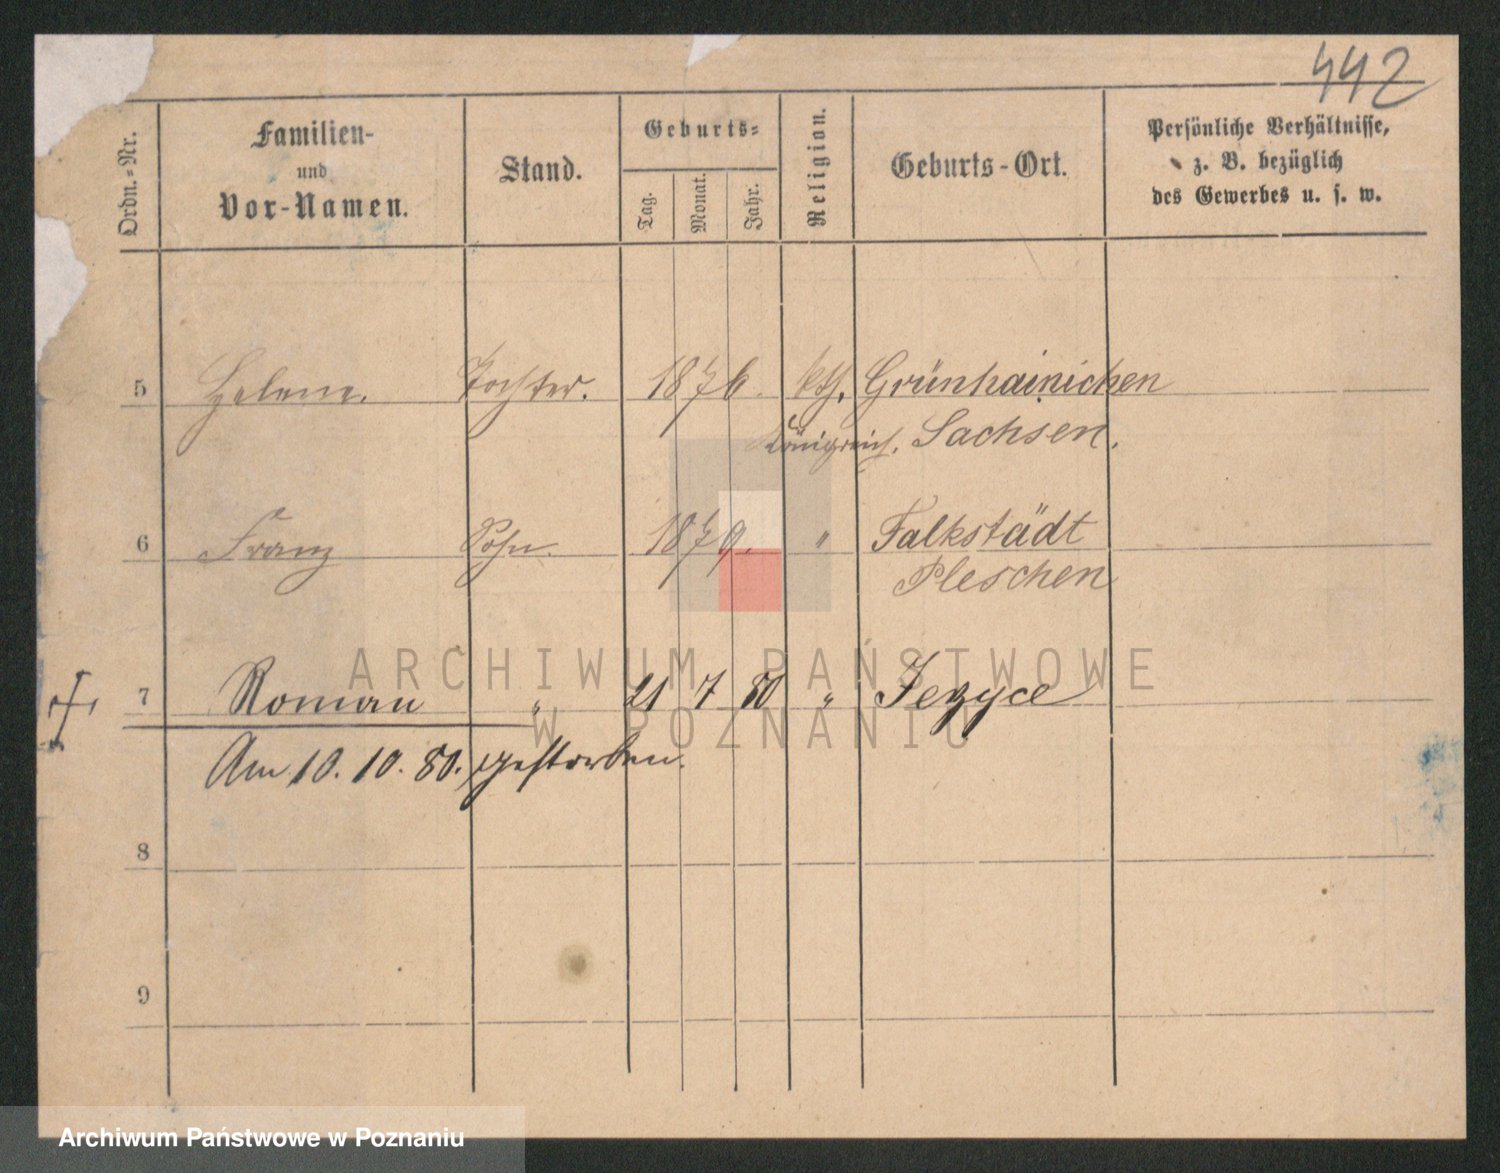 442
Ordn.-Nr.
Familien-
und
Vor-Namen.
Stand.
Geburts-
Tag.
Monat.
Jahr.
Religion.
Geburts-Ort.
Persönliche Verhältnisse,
z. B. bezüglich
des Gewerbes u. s. w.
5 Helene. Tochter. 1876. kth. Grünhainichen
Königreich. Sachsen.
6 Franz Sohn. 1879. " Falkstädt
Pleschen
7 Roman " 21 7 80 " Jezyce
Am 10. 10. 80. gestorben.
8
9
ARCHIWUM PAŃSTWOWE
W POZNANIU
Archiwum Państwowe w Poznaniu